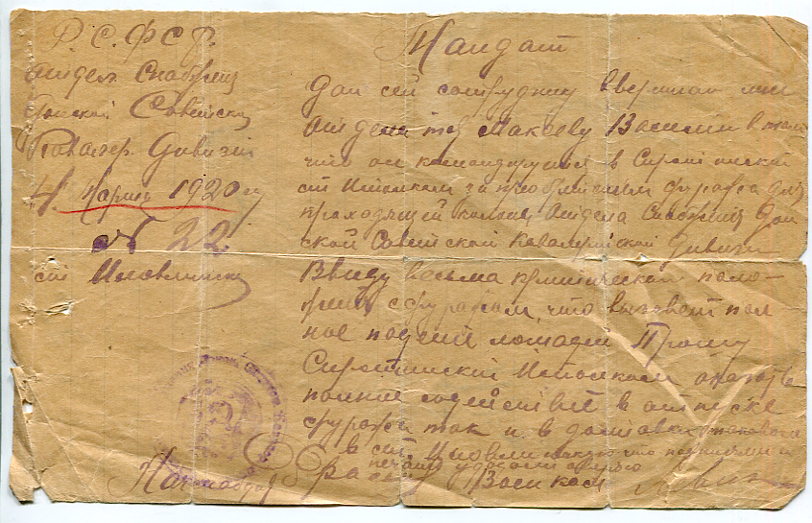 Р.С.Ф.С.Р.
Отдел Снабжен
Донской Советской
Кавалер. Дивизии
4 Марта 1920 г.
№ 22
ст Иловлинская
Мандат
Дан сей сотруднику вверенного мне
Отдела тов Макееву Василию в том
что он командируется в Сиротинский
ст Исполком за приобретением фуража для
проходящей колоны Отдела Снабжения Дон
ской Советской Кавалерийской Дивизии
Ввиду весьма критическаго поло-
жения с фуражом, что вызовет пол
ное лошадей Прошу
Сиротинский Исполком оказать
полное содействие в отпуске
фуража так и в доставке такового
в ст. Иловлинскую что подписями и
печатью удостоверяю
Начснабдив
Военком